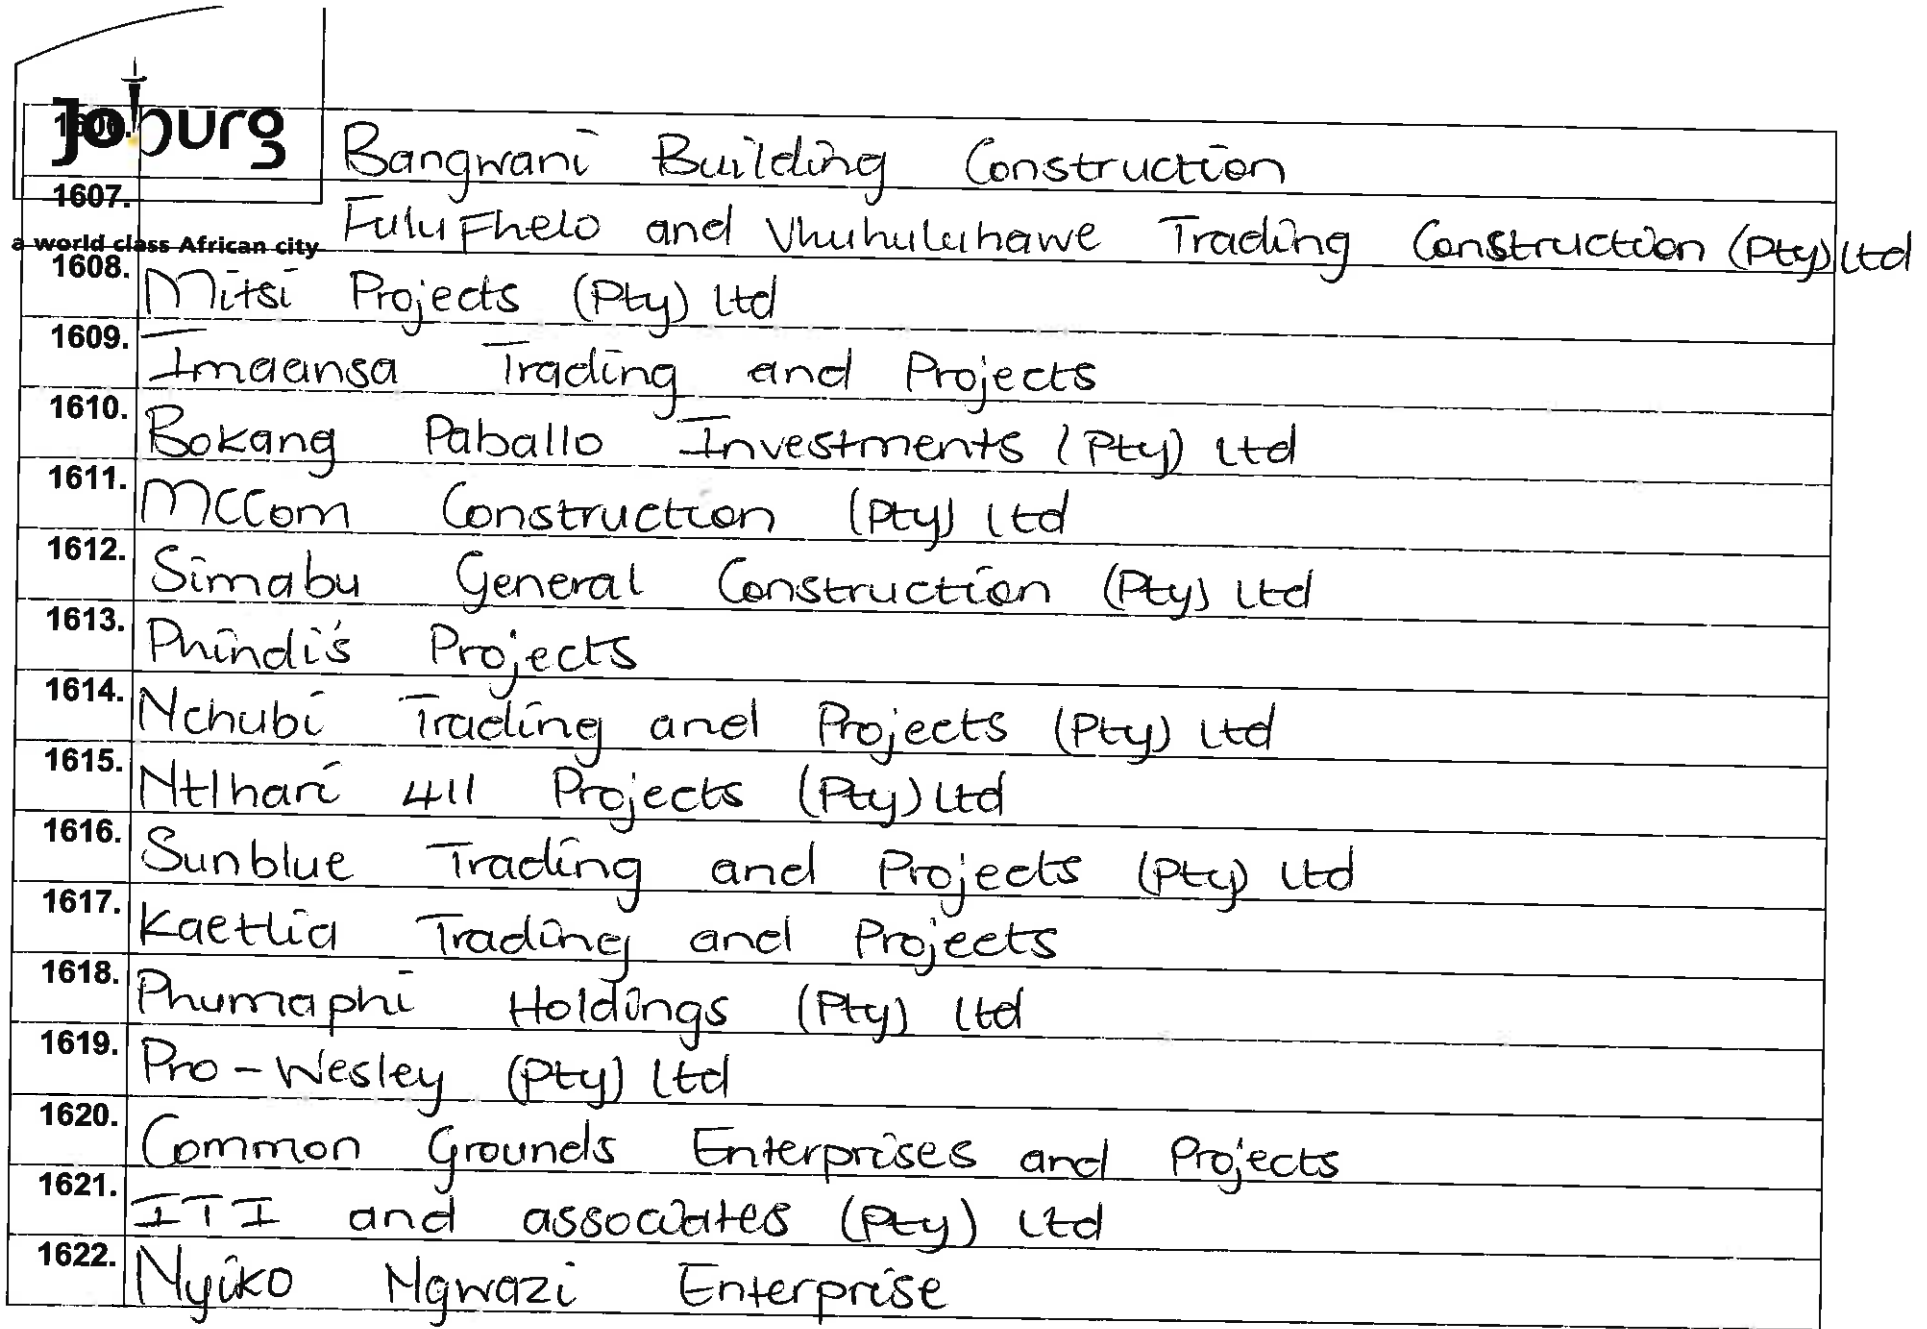 Joburg
1606. Bangwani Building Construction
1607. FuluFhelo and Vhuhuluhawe Trading Construction (Pty) Ltd
a world class African city
1608. Mitsi Projects (Pty) Ltd
1609. Imaansa Trading and Projects
1610. Bokang Paballo Investments (Pty) Ltd
1611. MCCom Construction (Pty) Ltd
1612. Simabu General Construction (Pty) Ltd
1613. Phindi's Projects
1614. Nchubi Trading and Projects (Pty) Ltd
1615. Ntlhari 411 Projects (Pty) Ltd
1616. Sunblue Trading and Projects (Pty) Ltd
1617. Kaetlia Trading and Projects
1618. Phumaphi Holdings (Pty) Ltd
1619. Pro-Wesley (Pty) Ltd
1620. Common Grounds Enterprises and Projects
1621. ITI and associates (Pty) Ltd
1622. Nyiko Ngwazi Enterprise